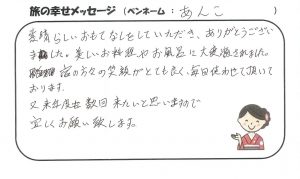 旅の幸せメッセージ（ペンネーム： あんこ ）
素晴らしいおもてなしをしていただき、ありがとうござい
ました。美しいお料理やお風呂に大変癒されました。
宿の方々の笑顔がとても良く、毎回使わせて頂いて
おります。
又来年度数回来たいと思いますので
宜しくお願い致します。